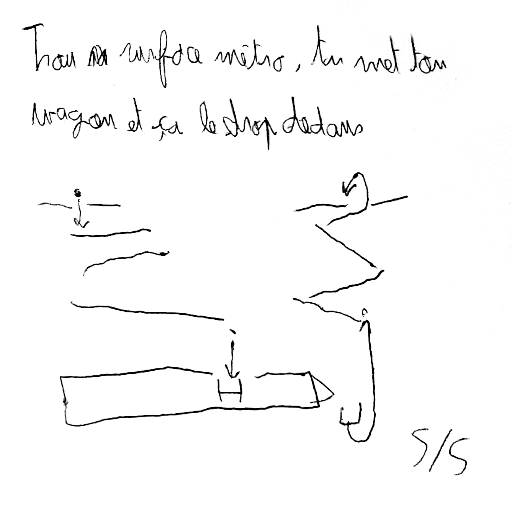 Trou surface métro, tu met ton
wagon et ça le drop dedans
S/S